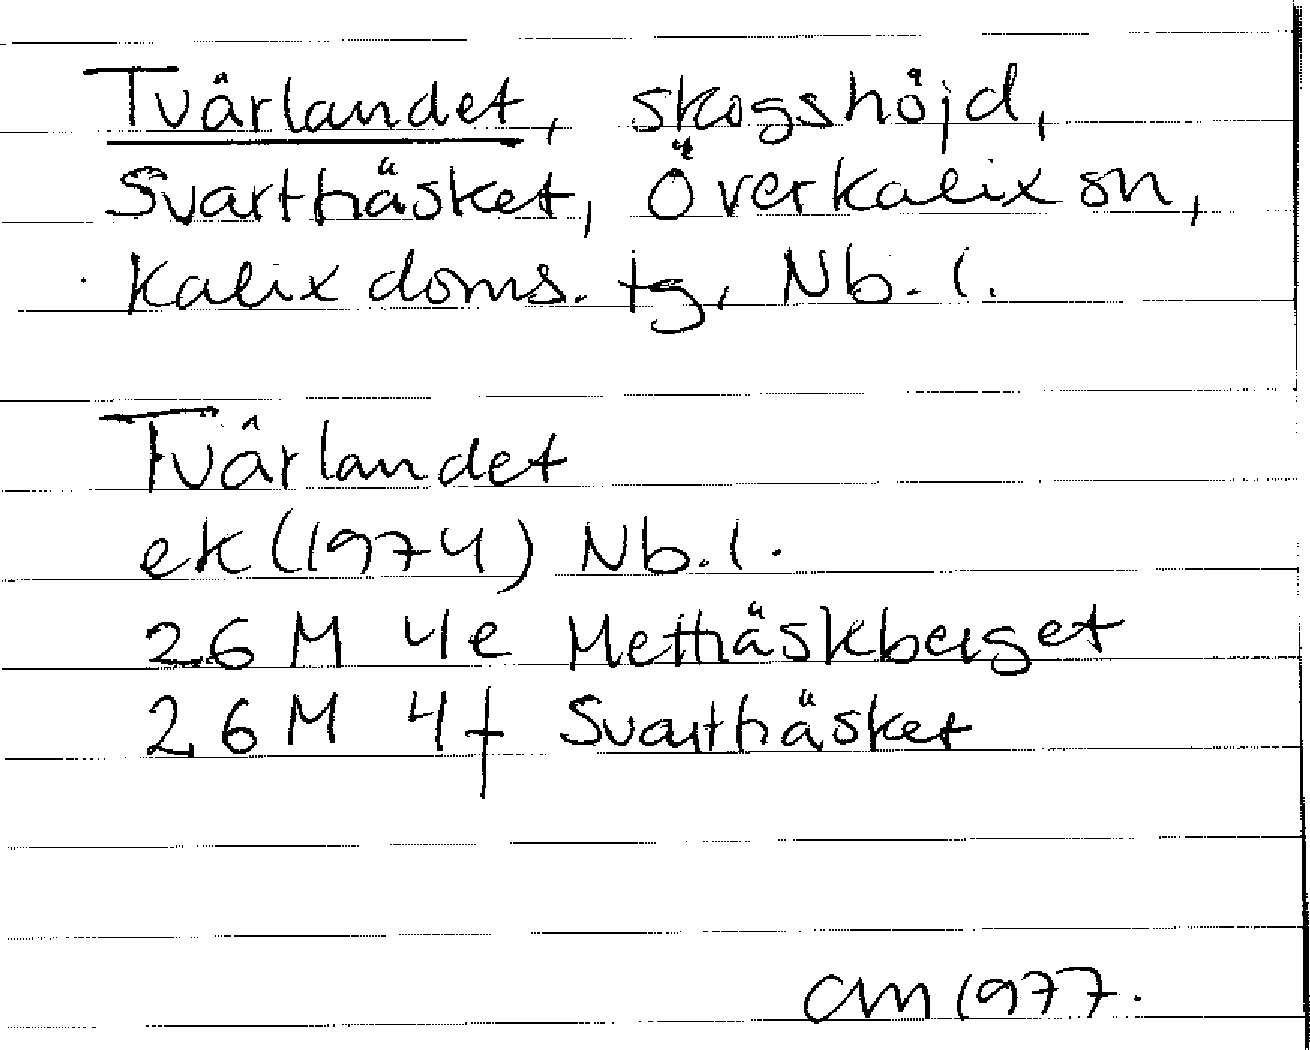 Tvärlandet, skogshöjd,
Svartträsket, Överkalix sn,
Kalix doms. tg, Nb. l.
Tvärlandet
ek (1974) Nb. l.
26 M 4e Metträskberget
26 M 4f Svartträsket
CM 1977.